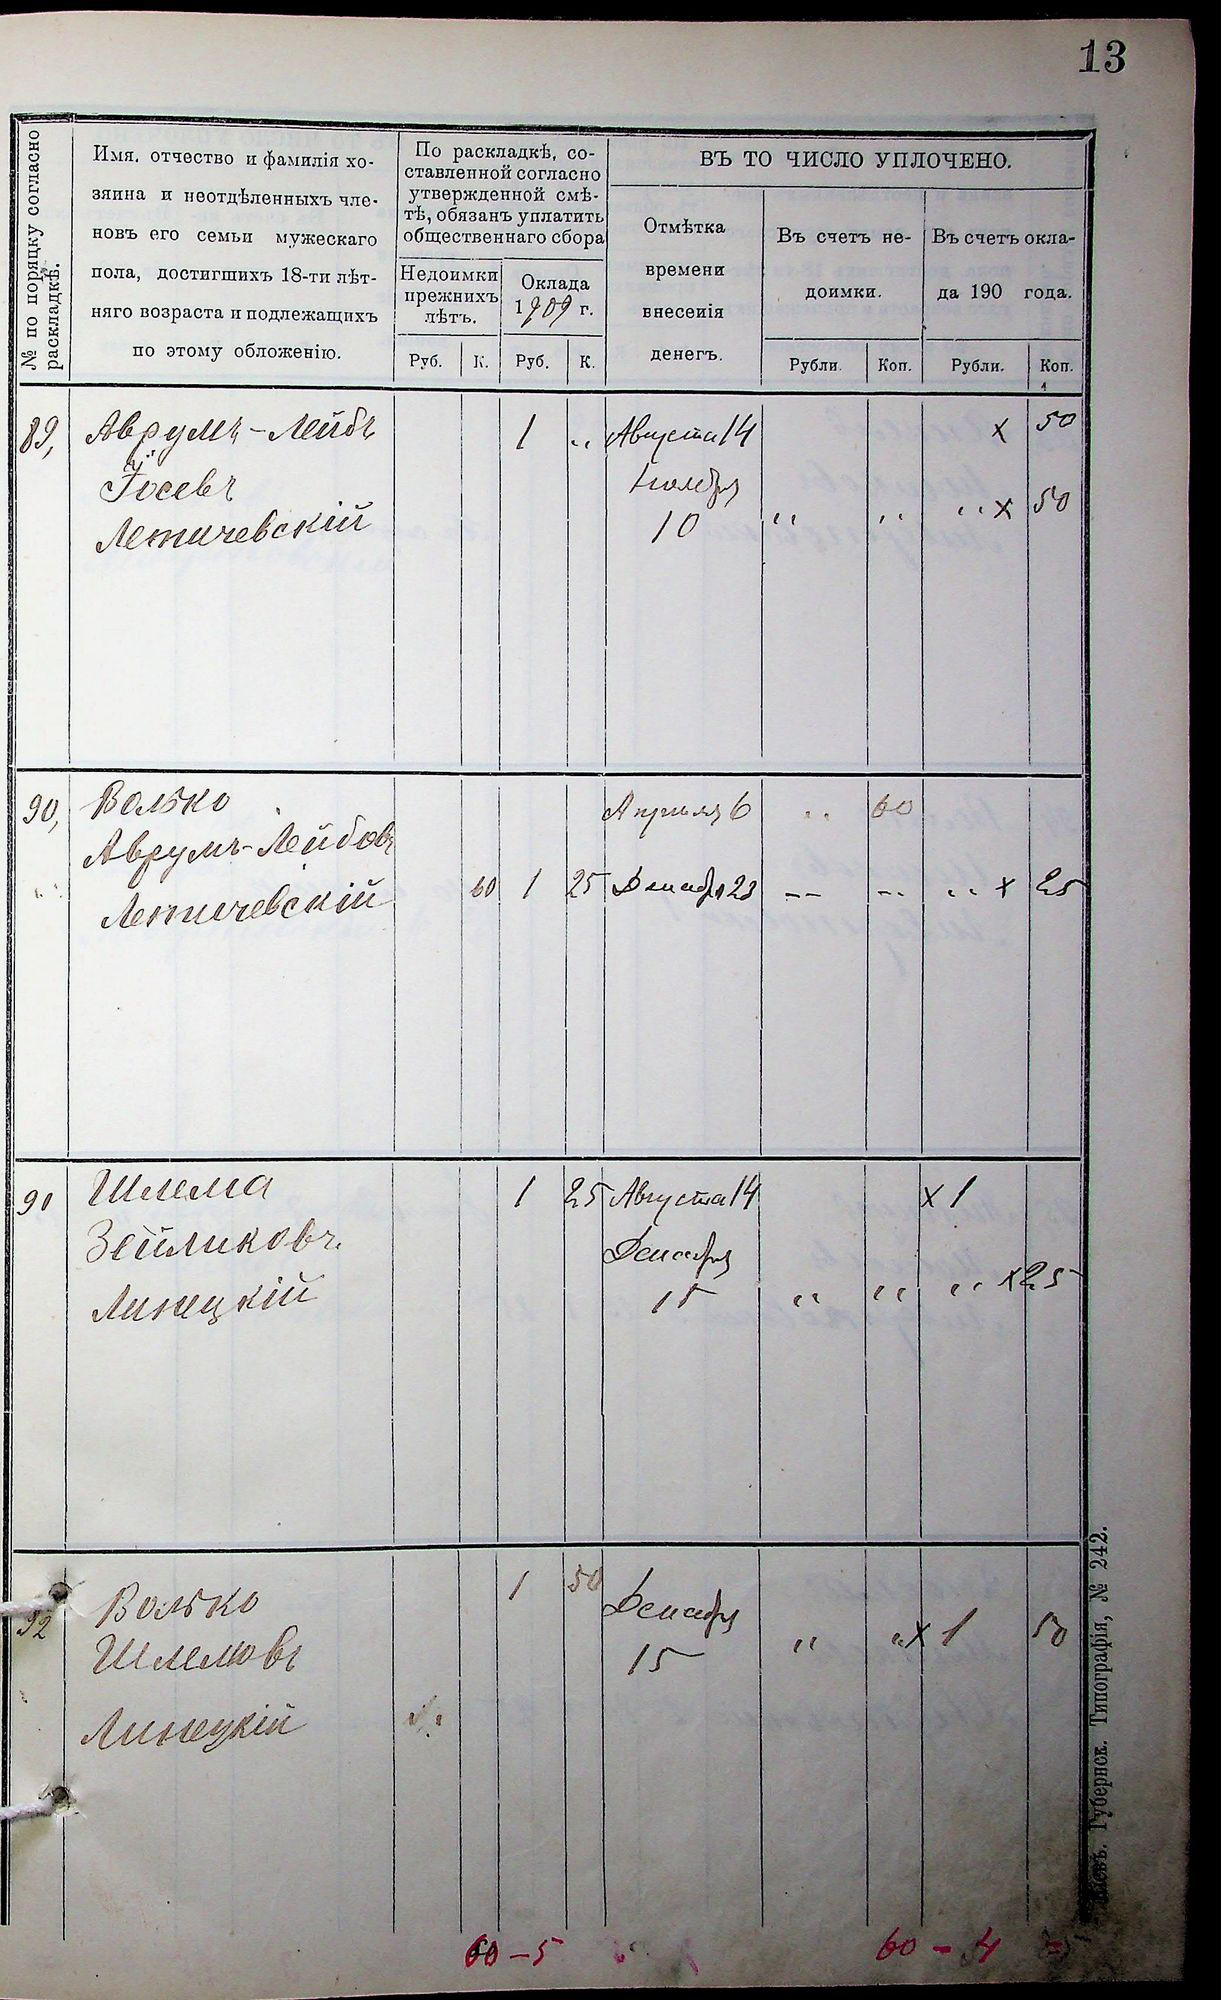 13
№ по поряцку согласно
раскладкѣ.
Имя, отчество и фамилія хо-
зяина и неотдѣленныхъ чле-
новъ его семьи мужескаго
пола, достигшихъ 18-ти лѣт-
няго возраста и подлежащихъ
по этому обложенію.
По раскладкѣ, со-
ставленной согласно
утвержденной смѣ-
тѣ, обязанъ уплатить
общественнаго сбора
Недоимки
прежнихъ
лѣтъ.
Оклада
1909 г.
Руб. К. Руб. К.
ВЪ ТО ЧИСЛО УПЛОЧЕНО.
Отмѣтка
времени
внесенія
денегъ.
Въ счетъ не-
доимки.
Въ счетъ окла-
да 190 года.
Рубли. Коп. Рубли. Коп.
89, Аврумъ-Лейбъ 1 „ Августа 14 х 50
Іосевъ Ноября
Летичевскій 10 „ „ „ х 50
90, Волько Апрѣля 6 „ 60
Аврумъ-Лейбовъ
Летичевскій 60 1 25 Декабря 23 -- -- „ х 25
91 Шлема 1 25 Августа 14 х 1
Зейликовъ. Декабря
Линецкій 15 „ „ „ х 25
92 Волько 1 50 Декабря
Шлемовъ 15 „ „ х 1 50
Линецкій
60 - 5 60 - 4
Кіевъ. Губернск. Типографія, № 242.